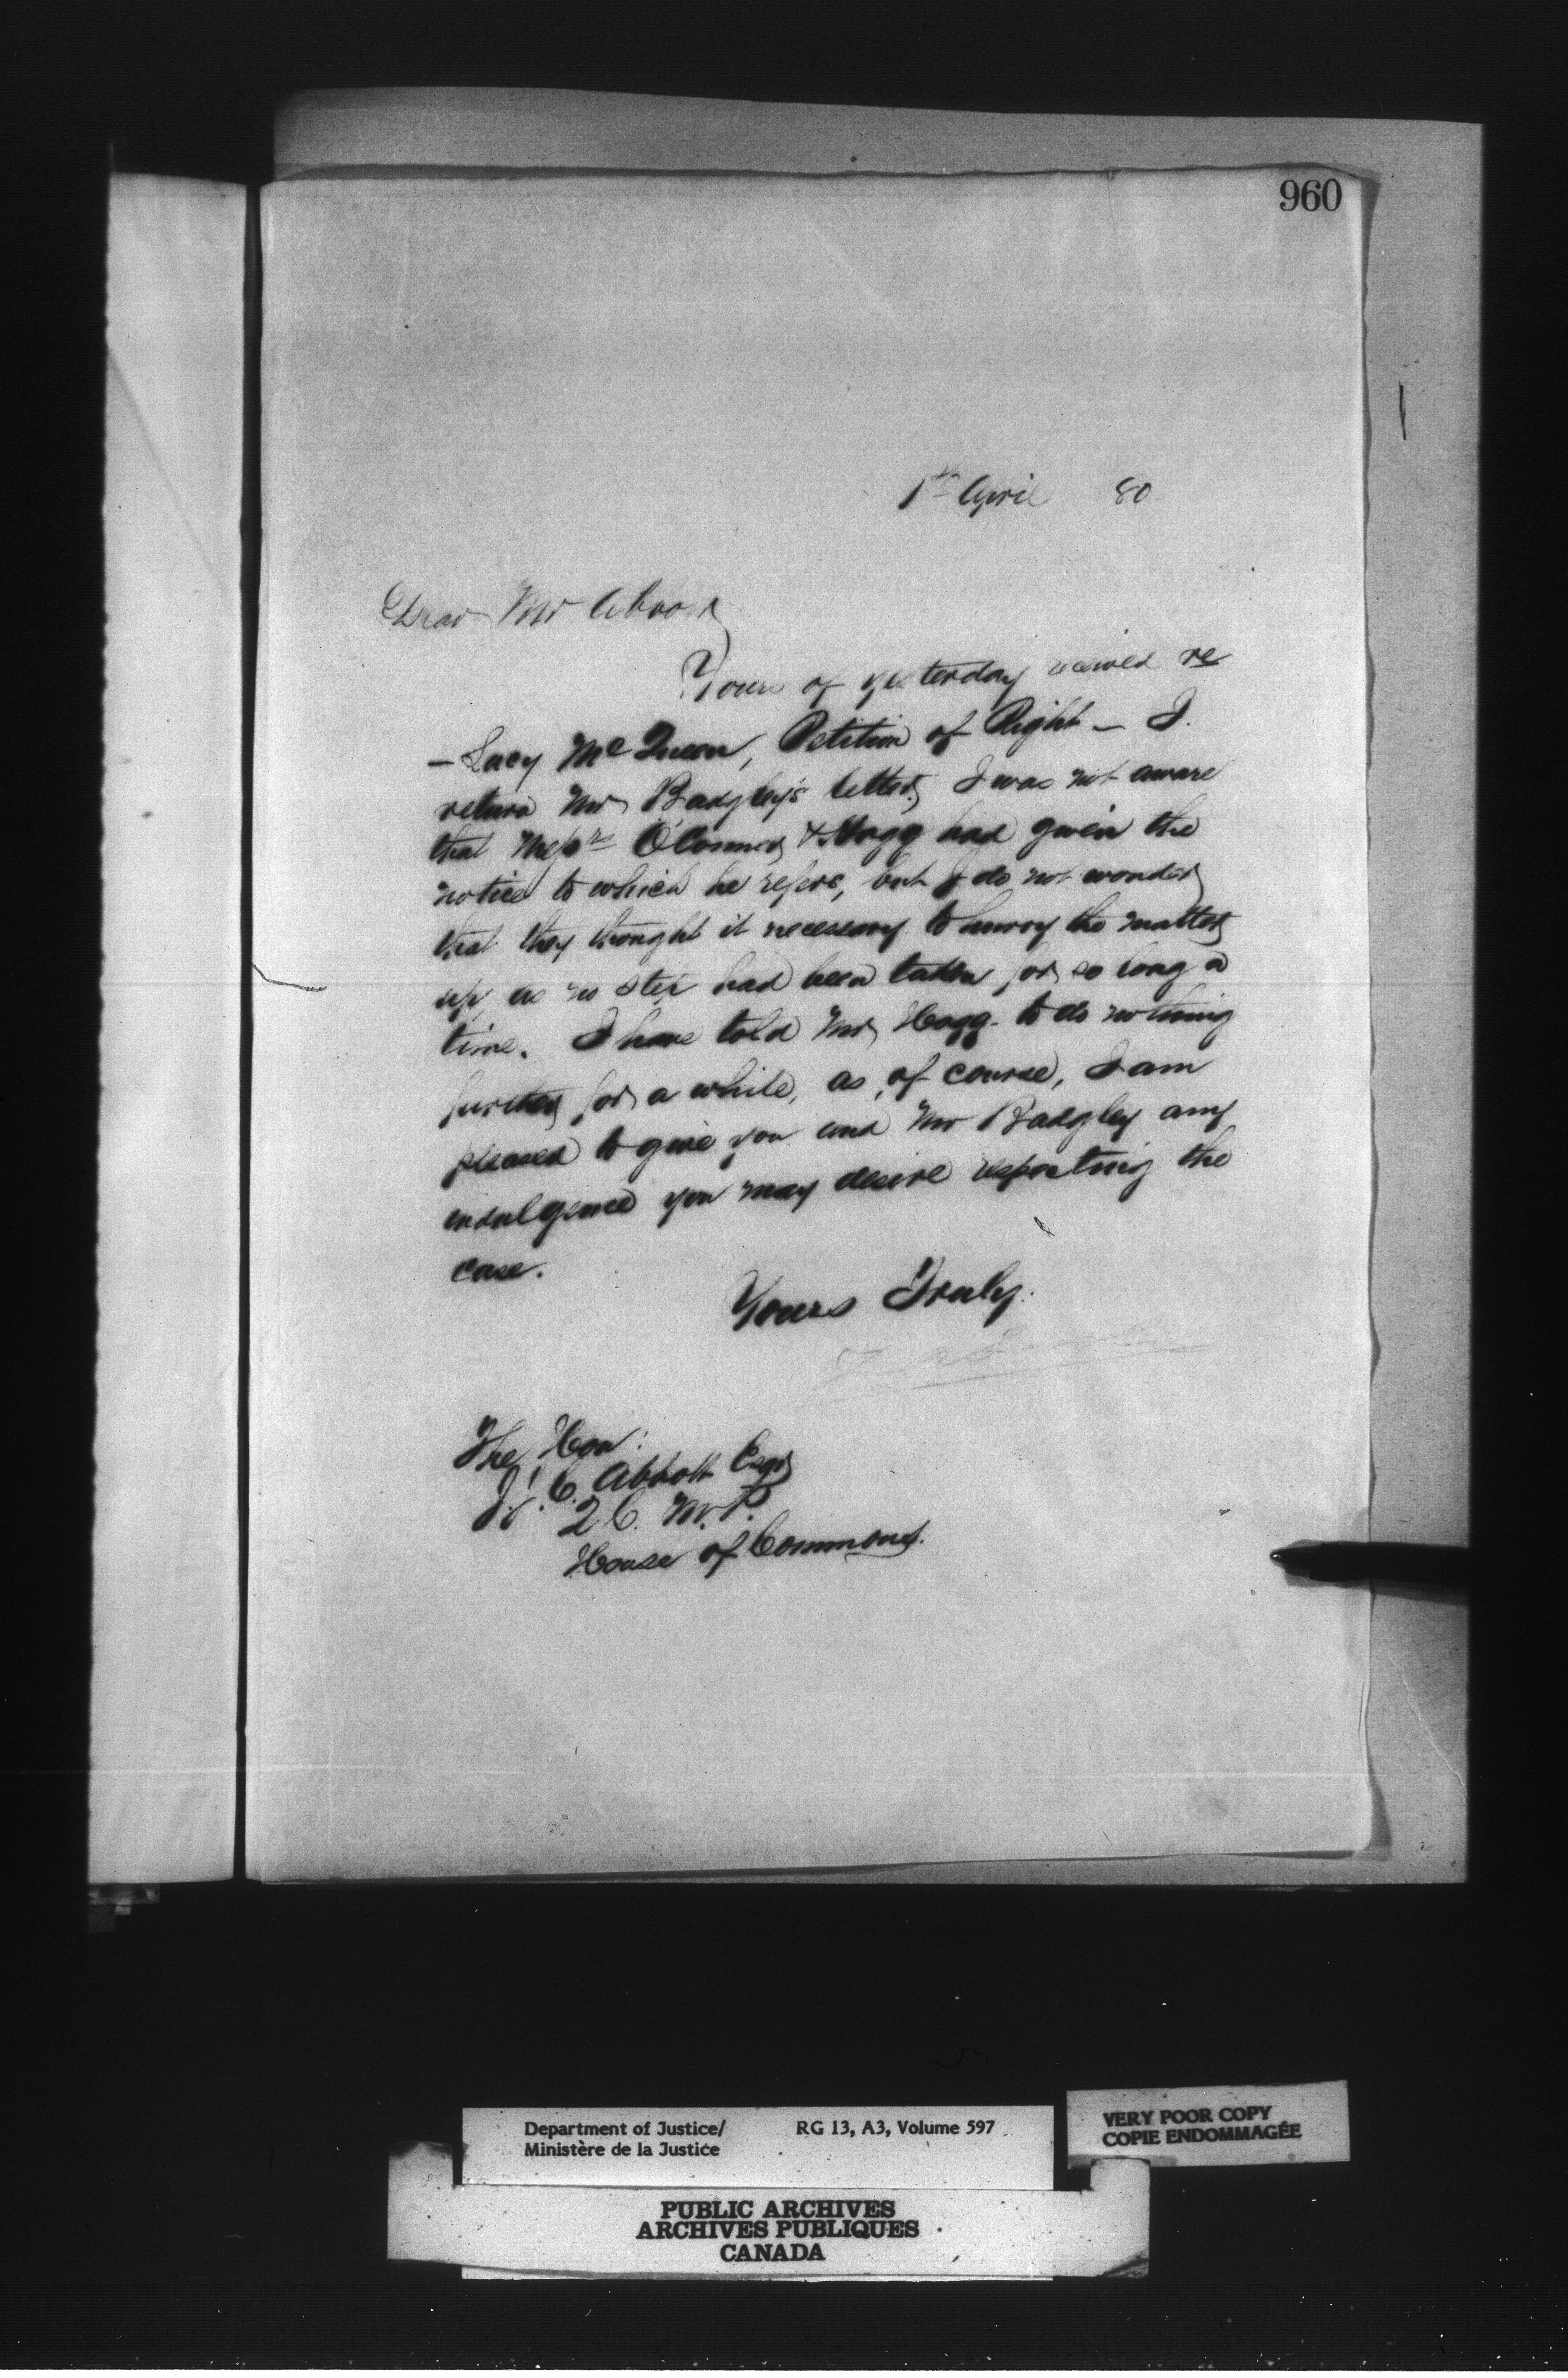 960
1st April 80
Dear Mr Abbott
Yours of yesterday received re
- Lacy McQueen, Petition of Right - I
return Mr Badgley's letter, I was not aware
that Messrs O'Connor & Hogg had given the
notice to which he refers, but I do not wonder
that they thought it necessary to hurry the matter
up, as no step had been taken for so long a
time. I have told Mr Hogg to do nothing
further for a while, as, of course, I am
pleased to give you and Mr Badgley any
indulgence you may desire respecting the
case.
Yours Truly.
The Hon:
J. J. C. Abbott Esqr
Q.C. M.P.
House of Commons.
Department of Justice/ RG 13, A3, Volume 597
Ministère de la Justice
VERY POOR COPY
COPIE ENDOMMAGÉE
PUBLIC ARCHIVES
ARCHIVES PUBLIQUES
CANADA